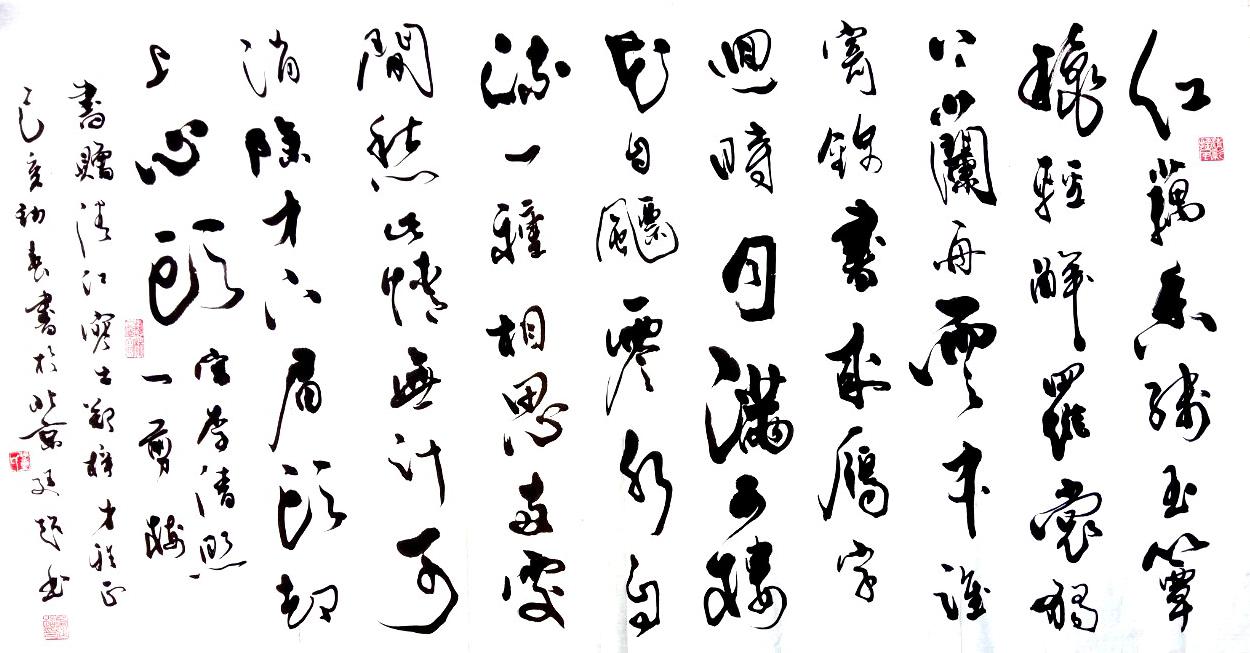 红藕香殘玉簟
龝輕解羅裳獨
上蘭舟雲中誰
寄錦書來雁字
迴時月滿西樓
花自飄零水自
流一種相思兩處
閒愁此情無計可
消除才下眉頭卻
上心頭
宋李清照
一剪梅
書贈清江
己亥初春書於北京